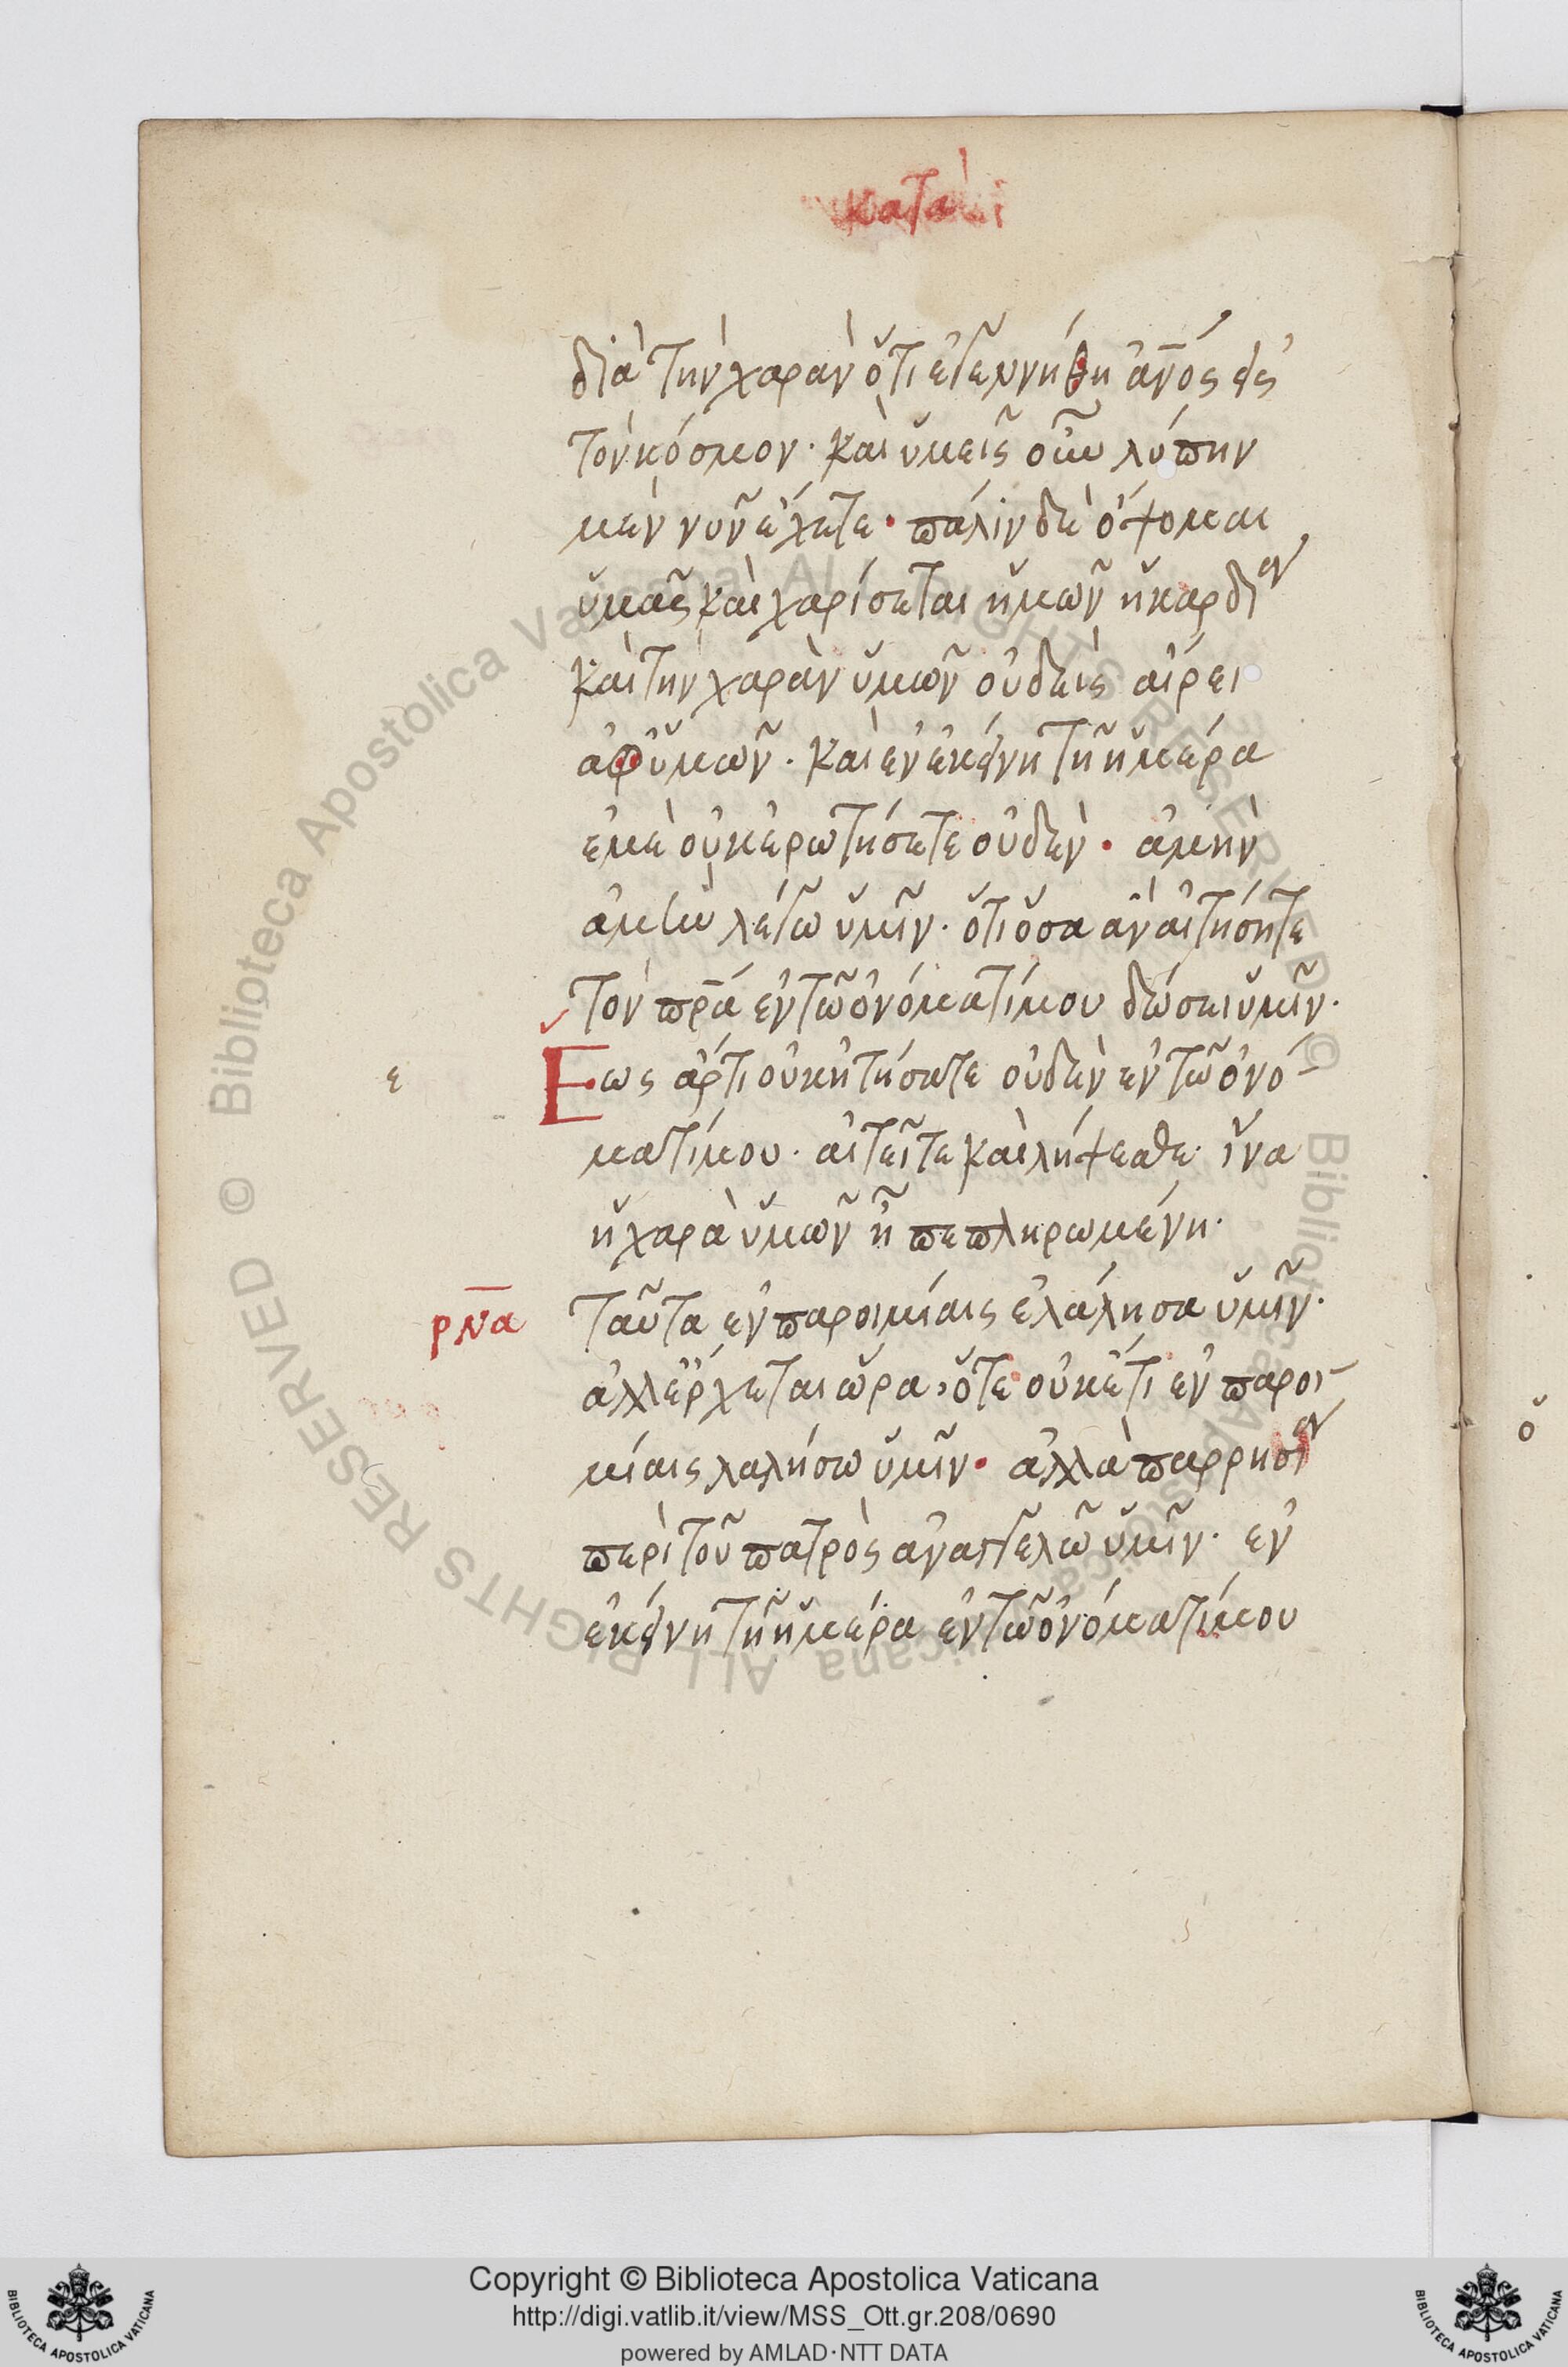 κατὰ
διὰ τὴν χαρὰν ὅτι ἐγεννήθη ἀν̅ος εἰς
τὸν κόσμον· καὶ ὑμεῖς οὖν λύπην
μὲν νῦν ἔχετε· πάλιν δὲ ὄψομαι
ὑμᾶς καὶ χαρίσεται ἡμῶν ἡ καρδία
καὶ τὴν χαρὰν ὑμῶν οὐδεὶς αἴρει
ἀφ ὑμῶν· καὶ ἐν ἐκείνη τῆ ἡμέρα
ἐμὲ οὐκ ἐρωτήσετε οὐδέν· ἀμὴν
ἀμὴν λέγω ὑμῖν· ὅτι ὅσα ἂν αἰτήσητε
τὸν πρ̅α ἐν τῶ ὀνόματί μου δώσει ὑμῖν·
ε Εως ἄρτι οὐκ ἠτήσατε οὐδὲν ἐν τῶ ὀνό
ματί μου· αἰτεῖτε καὶ λήψεσθε· ἵνα
ἡ χαρὰ ὑμῶν ἦ πεπληρωμένη·
ρν̅α ταῦτα ἐν παροιμίαις ἐλάλησα ὑμῖν·
ἀλλ ἔρχεται ὥρα, ὅτε οὐκέτι ἐν παροι
μίαις λαλήσω ὑμῖν· ἀλλὰ παρρησία
περὶ τοῦ πατρὸς ἀναγγελῶ ὑμῖν· ἐν
ἐκείνη τῆ ἡμέρα ἐν τῶ ὀνόματί μου
Biblioteca Apostolica Vaticana ALL RIGHTS RESERVED ©
Biblioteca Apostolica Vaticana ALL RIGHTS RESERVED ©
Copyright © Biblioteca Apostolica Vaticana
http://digi.vatlib.it/view/MSS_Ott.gr.208/0690
powered by AMLAD·NTT DATA
BIBLIOTECA APOSTOLICA VATICANA
BIBLIOTECA APOSTOLICA VATICANA